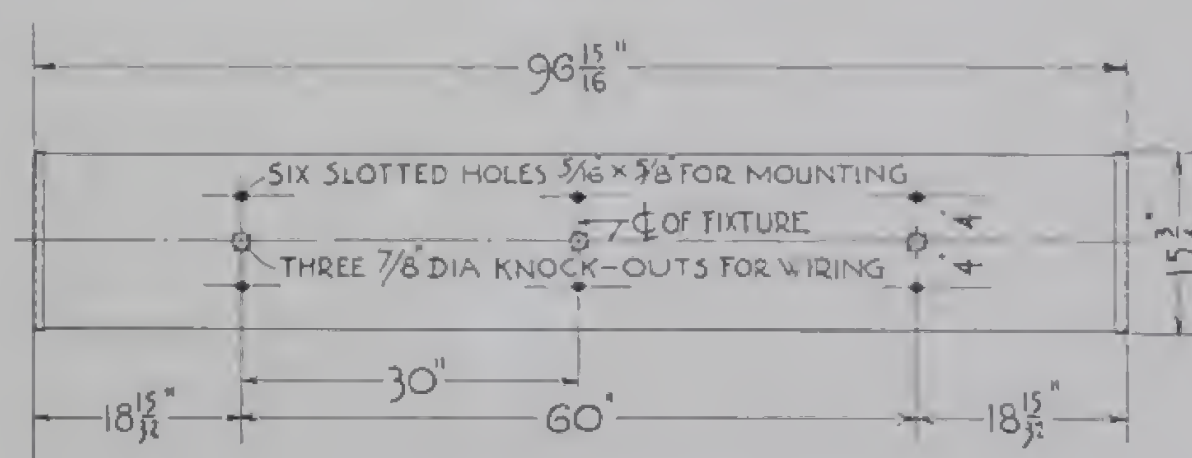 96 15/16"
SIX SLOTTED HOLES 5/16" × 5/8" FOR MOUNTING
℄ OF FIXTURE
4"
THREE 7/8" DIA KNOCK-OUTS FOR WIRING
4"
30"
18 15/32"
60"
18 15/32"